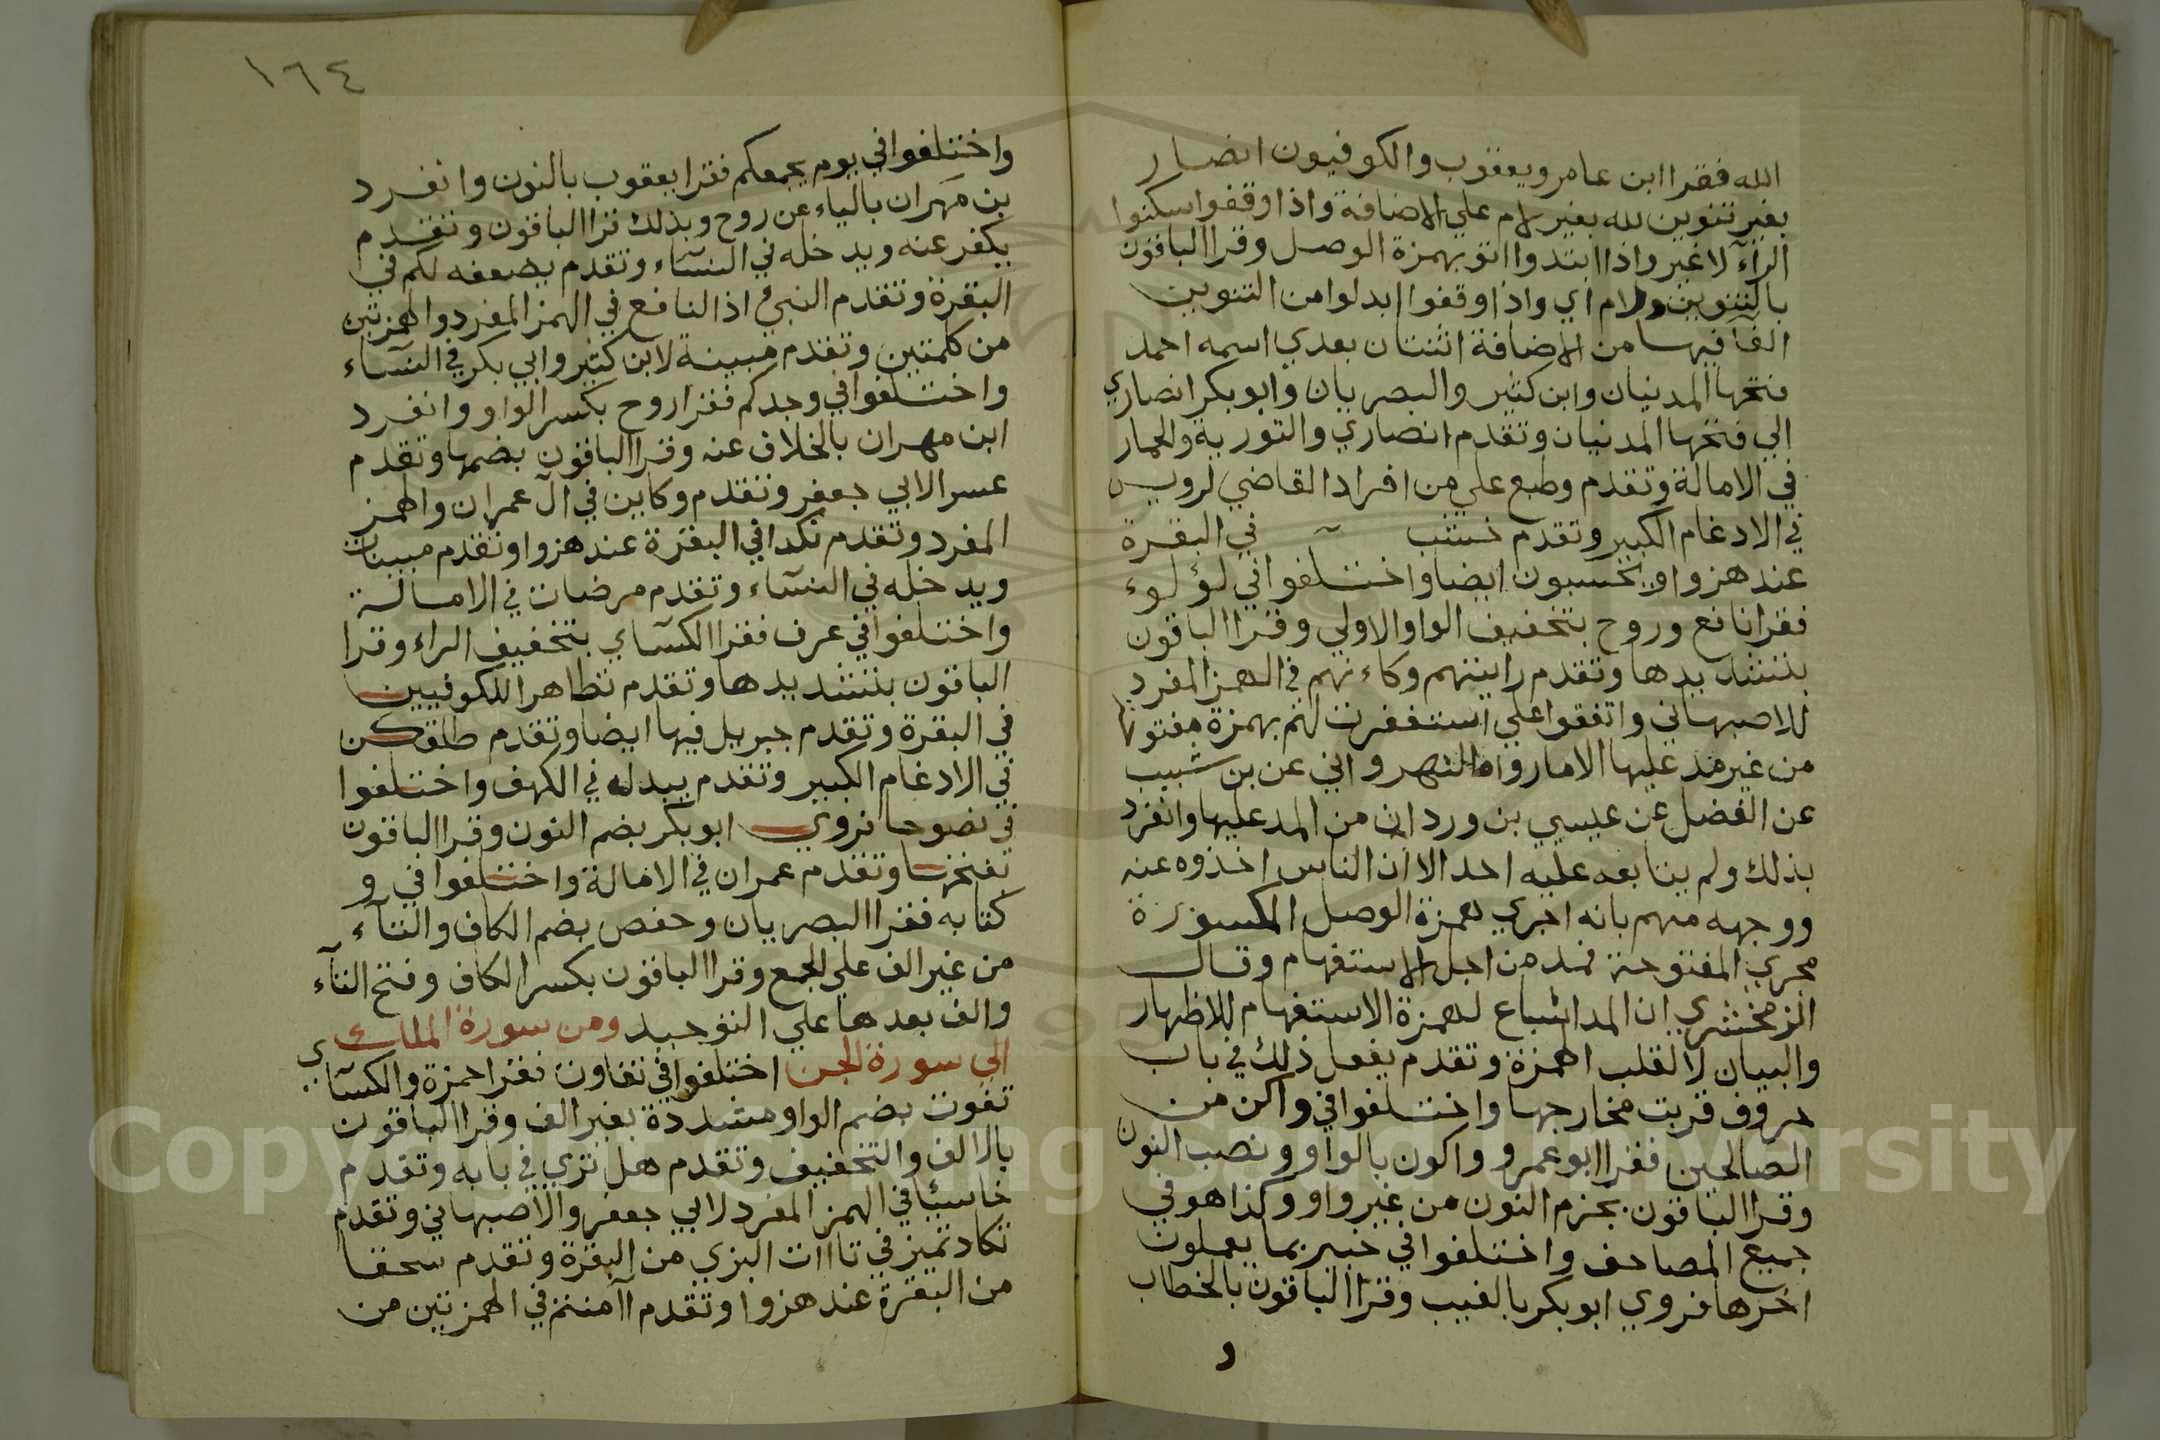 الله فقرا ابن عامر ويعقوب والكوفيون انصار
بغير تنوين لله بغير لام علي الاضافة واذا وقفوا سكنوا
الرآء لا غير واذا ابتدوا اتو بهمزة الوصل وقرا الباقون
بالتنوين ولام اي واذا وقفوا ابدلوا من التنوين
الفا فيها من الاضافة اثنتان بعدي اسمه احمد
فتحها المدنيان وابن كثير والبصريان وابو بكر انصاري
الي فتحها المدنيان وتقدم انصاري والتورية والحمار
في الامالة وتقدم وطبع علي من افراد القاضي لرويس
في الادغام الكبير وتقدم خشب في البقرة
عند هزوا ويحسبون ايضا واختلفوا في لؤلوء
فقرا نافع وروح بتخفيف الواو الاولي وقرا الباقون
بتشديدها وتقدم رايتهم وكاءنهم في الهمز المفرد
للاصبهاني واتفقوا علي استغفرت لهم بهمزة مفتوحا
من غير مد عليها الا مارواه النهرواني عن بن شبيب
عن الفضل عن عيسي بن وردان من المد عليها وانفرد
بذلك ولم يتابعه عليه احد الا ان الناس اخذوه عنه
ووجهه منهم بانه اجري همزة الوصل المكسورة
مجري المفتوحة فمد من اجل الاستفهام وقال
الزمخشري ان المد اشباع لهمزة الاستفهام للاظهار
والبيان لا لقلب الهمزة وتقدم يفعل ذلك في باب
حروف قربت مخارجها واختلفوا في واكن من
الصالحين فقرا ابو عمرو واكون بالواو ونصب النون
وقرا الباقون بجزم النون من غير واو وكذا هو في
جميع المصاحف واختلفوا في خبير بما يعملون
اخرها فروي ابو بكر بالغيب وقرا الباقون بالخطاب
و
١٦٤
واختلفوا في يوم يجمعكم فقرا يعقوب بالنون وانفرد
بن مهران بالياء عن روح وبذلك قرا الباقون وتقدم
يكفر عنه ويدخله في النساء وتقدم يضعفه لكم في
البقرة وتقدم النبي اذا لنافع في الهمز المفرد والهمزتين
من كلمتين وتقدم مبينة لابن كثير وابي بكر في النساء
واختلفوا في وجدكم فقرا روح بكسر الواو وانفرد
ابن مهران بالخلاف عنه وقرا الباقون بضمها وتقدم
عسرا لابي جعفر وتقدم وكاين في آل عمران والهمز
المفرد وتقدم نكرا في البقرة عند هزوا وتقدم مبينات
ويدخله في النساء وتقدم مرضات في الامالة
واختلفوا في عرف فقرا الكسآي بتخفيف الراء وقرا
الباقون بتشديدها وتقدم تظاهرا للكوفيين
في البقرة وتقدم جبريل فيها ايضا وتقدم طلقكن
في الادغام الكبير وتقدم يبدله في الكهف واختلفوا
في نصوحا فروي ابو بكر بضم النون وقرا الباقون
بفتحها وتقدم عمران في الامالة واختلفوا في و
كتابه فقرا البصريان وحفص بضم الكاف والتآء
من غير الف علي الجمع وقرا الباقون بكسر الكاف وفتح التآء
والف بعدها علي التوحيد ومن سورة الملك
الي سورة الجن اختلفوا في تفاوت فقرا حمزة والكسآي
تفوت بضم الواو مشددة بغير الف وقرا الباقون
بالالف والتخفيف وتقدم هل تري في بابه وتقدم
خاسيا في الهمز المفرد لابي جعفر والاصبهاني وتقدم
تكاد تميز في تاات البزي من البقرة وتقدم سحقا
من البقرة عند هزوا وتقدم آامنتم في الهمزتين من
Copyright © King Saud University